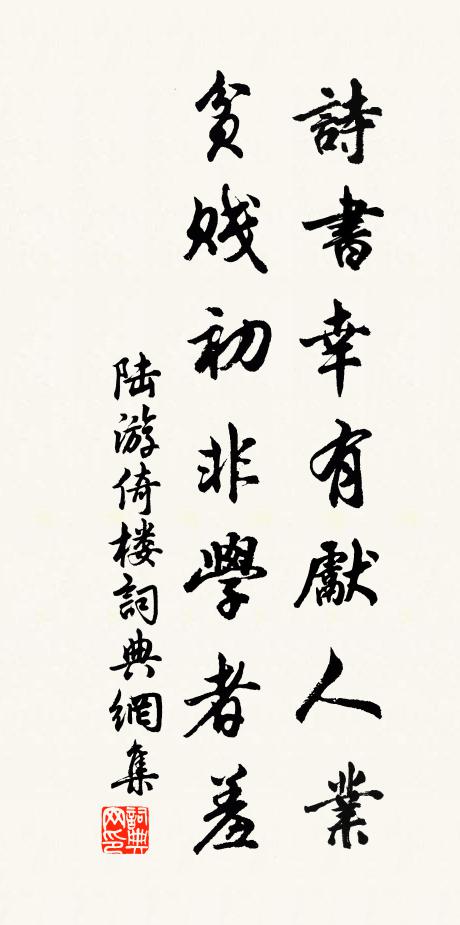 詩書幸有獻人業
貧賤初非學者羞
陆游倚楼詞典網集
詞典网印